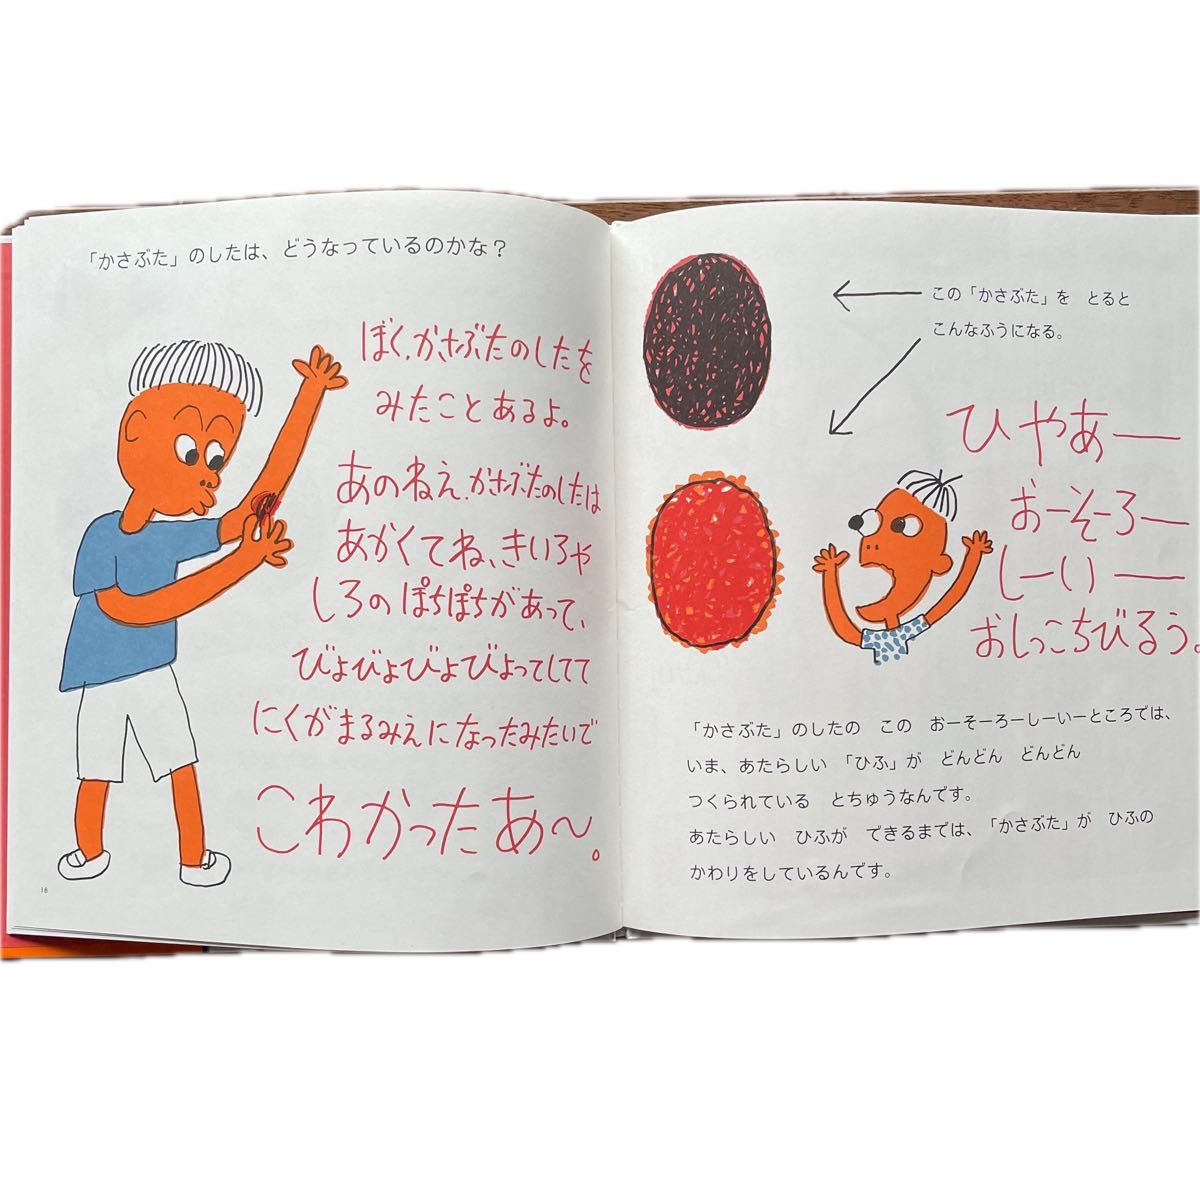 「かさぶた」のしたは、どうなっているのかな？
ぼく、かさぶたのしたを
みたことあるよ。
あのねえ、かさぶたのしたは
あかくてね、きいろや
しろのぽちぽちがあって、
びよびよびよびよってしてて
にくがまるみえになったみたいで
こわかったあ〜。
18
この「かさぶた」を　とると
こんなふうになる。
ひやあー
おーそーろー
しーいー
おしっこちびるう。
「かさぶた」のしたの　この　おーそーろーしーいーところでは、
いま、あたらしい　「ひふ」が　どんどん　どんどん
つくられている　とちゅうなんです。
あたらしい　ひふが　できるまでは、「かさぶた」が　ひふの
かわりをしているんです。